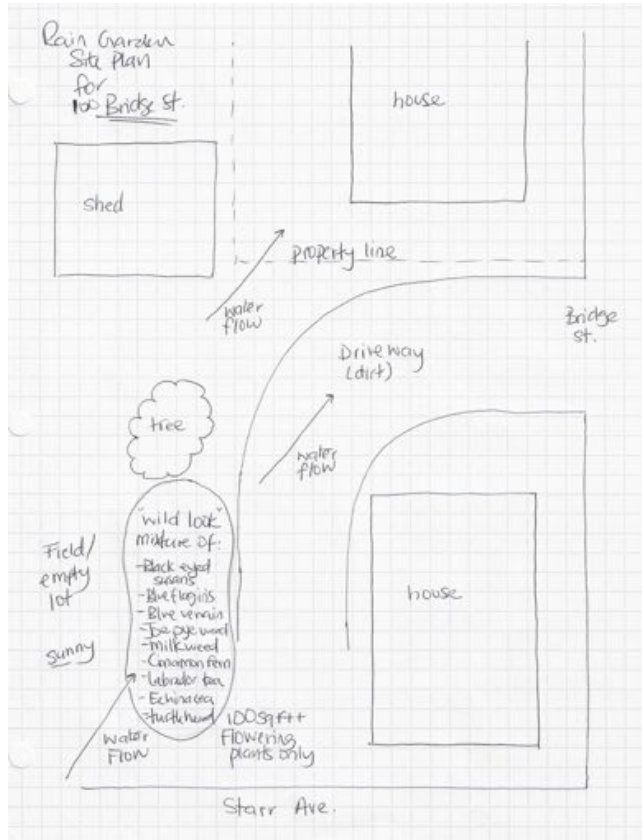 Rain Garden
Site Plan
for
100 Bridge St.
house
shed
property line
water
flow
Bridge
st.
Driveway
(dirt)
tree
water
flow
"wild look"
mixture of:
-Black eyed
susans
-Blue flag iris
-Blue vervain
-Joe pye weed
-milkweed
-Cinnamon fern
-Labrador tea
-Echinacea
-turtlehead
Field/
empty
lot
sunny
house
100 sq ft +
Flowering
plants only
water
Flow
Starr Ave.